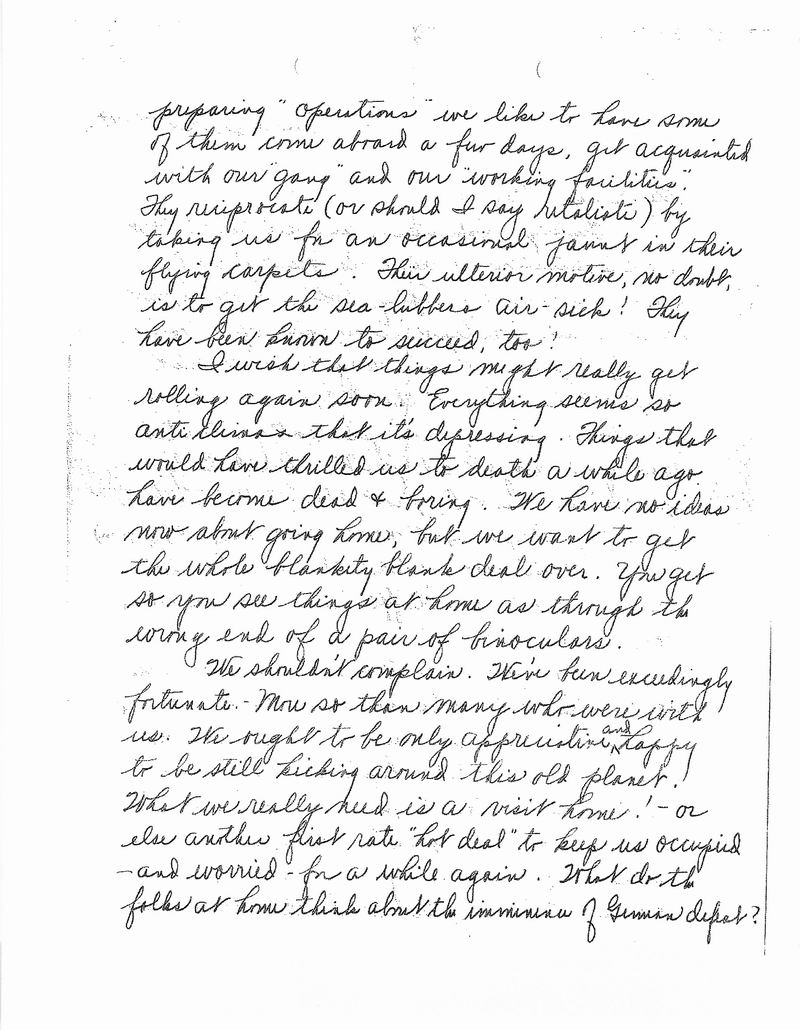 preparing "operations" we like to have some
of them come aboard a few days, get acquainted
with our "gang" and our "working facilities".
They reciprocate (or should I say retaliate) by
taking us for an occasional jaunt in their
flying carpets. Their ulterior motive, no doubt,
is to get the sea-lubbers air-sick! They
have been known to succeed, too!
I wish that things might really get
rolling again soon. Everything seems so
anti climax that it's depressing. Things that
would have thrilled us to death a while ago
have become dead & boring. We have no ideas
now about going home, but we want to get
the whole blankity blank deal over. You get
so you see things at home as through the
wrong end of a pair of binoculars.
We shouldn't complain. We've been exceedingly
fortunate. - More so than many who were with
us. We ought to be only appreciative and happy
to be still kicking around this old planet!
What we really need is a visit home! - or
else another first rate "hot deal" to keep us occupied
- and worried - for a while again. What do the
folks at home think about the imminence of German defeat?